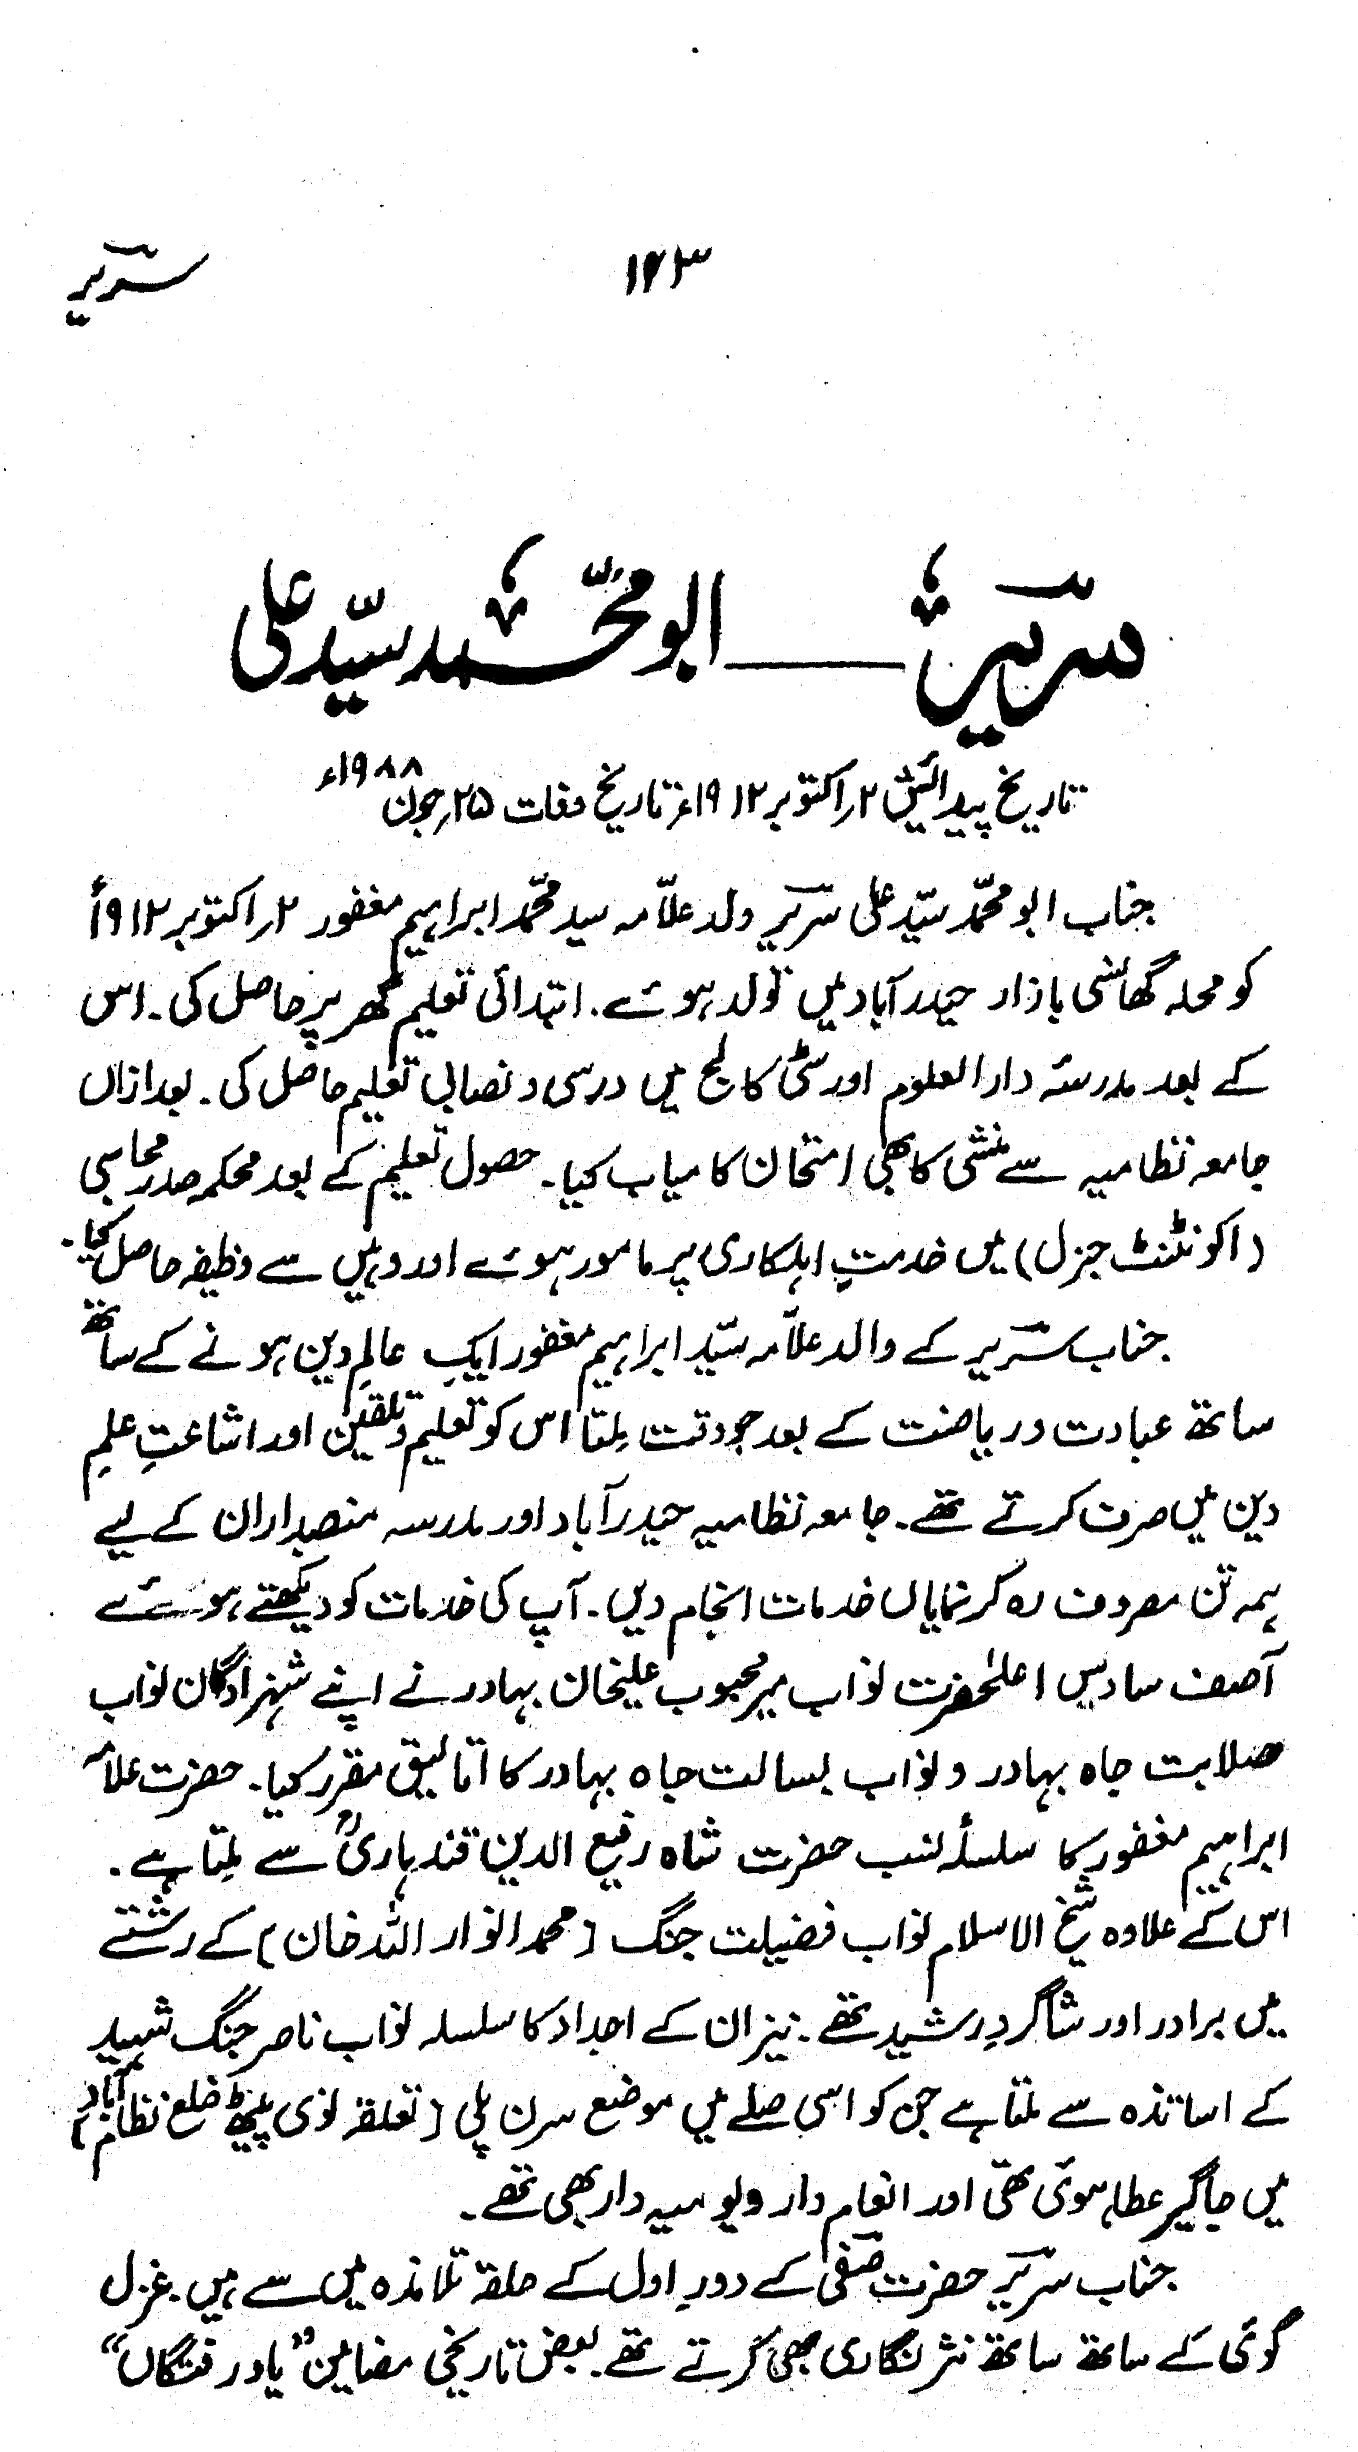 سریر
۱۲۳
سریر ــــ ابو محمّد سیّد علی
تاریخ پیدائش ۲؍اکتوبر ۱۹۱۲ء تاریخ وفات ۲۵؍جون ۱۹۸۸ء
جناب ابو محمّد سیّد علی سریر ولد علاّمہ سید محمّد ابراہیم مغفور ۲؍اکتوبر ۱۹۱۲ء
کو محلہ گھانسی بازار حیدرآباد میں تولد ہوئے۔ ابتدائی تعلیم گھر پر حاصل کی۔ اس
کے بعد مدرسۂ دارالعلوم اور سٹی کالج میں درسی و نصابی تعلیم حاصل کی۔ بعد ازاں
جامعہ نظامیہ سے منشی کا بھی امتحان کامیاب کیا۔ حصول تعلیم کے بعد محکمہ صدر محاسبی
(اکونٹنٹ جنرل) میں خدمتِ اہلکاری پر مامور ہوئے اور وہیں سے وظیفہ حاصل کیا۔
جناب سریر کے والد علاّمہ سیّد ابراہیم مغفور ایک عالمِ دین ہونے کے ساتھ
ساتھ عبادت و ریاضت کے بعد جو وقت مِلتا اس کو تعلیم و تلقین اور اشاعتِ علمِ
دین میں صرف کرتے تھے۔ جامعہ نظامیہ حیدرآباد اور مدرسہ منصبداران کے لیے
ہمہ تن مصروف رہ کر نمایاں خدمات انجام دیں۔ آپ کی خدمات کو دیکھتے ہوئے
آصف سادس اعلٰحضرت نواب میر محبوب علیخان بہادر نے اپنے شہزادگان نواب
صلابت جاہ بہادر و نواب بسالت جاہ بہادر کا اتالیق مقرر کیا۔ حضرت علامہ
ابراہیم مغفور کا سلسلۂ نسب حضرت شاہ رفیع الدین قندہاریؒ سے مِلتا ہے۔
اس کے علاوہ شیخ الاسلام نواب فضیلت جنگ [محمد انوار اللہ خان] کے رشتے
میں برادر اور شاگردِ رشید تھے۔ نیز ان کے اجداد کا سلسلہ نواب ناصر جنگ شہید
کے اساتذہ سے ملتا ہے جن کو اسی صلے میں موضع سرن پلی [تعلقہ نوی پیٹھ ضلع نظام آباد]
میں جاگیر عطا ہوئی تھی اور انعام دار و یومیہ دار بھی تھے۔
جناب سریر حضرت صفی کے دورِ اول کے حلقہ تلامذہ میں سے ہیں۔ غزل
گوئی کے ساتھ ساتھ نثر نگاری بھی کرتے تھے۔ بعض تاریخی مضامین ”یادِ رفتگاں“